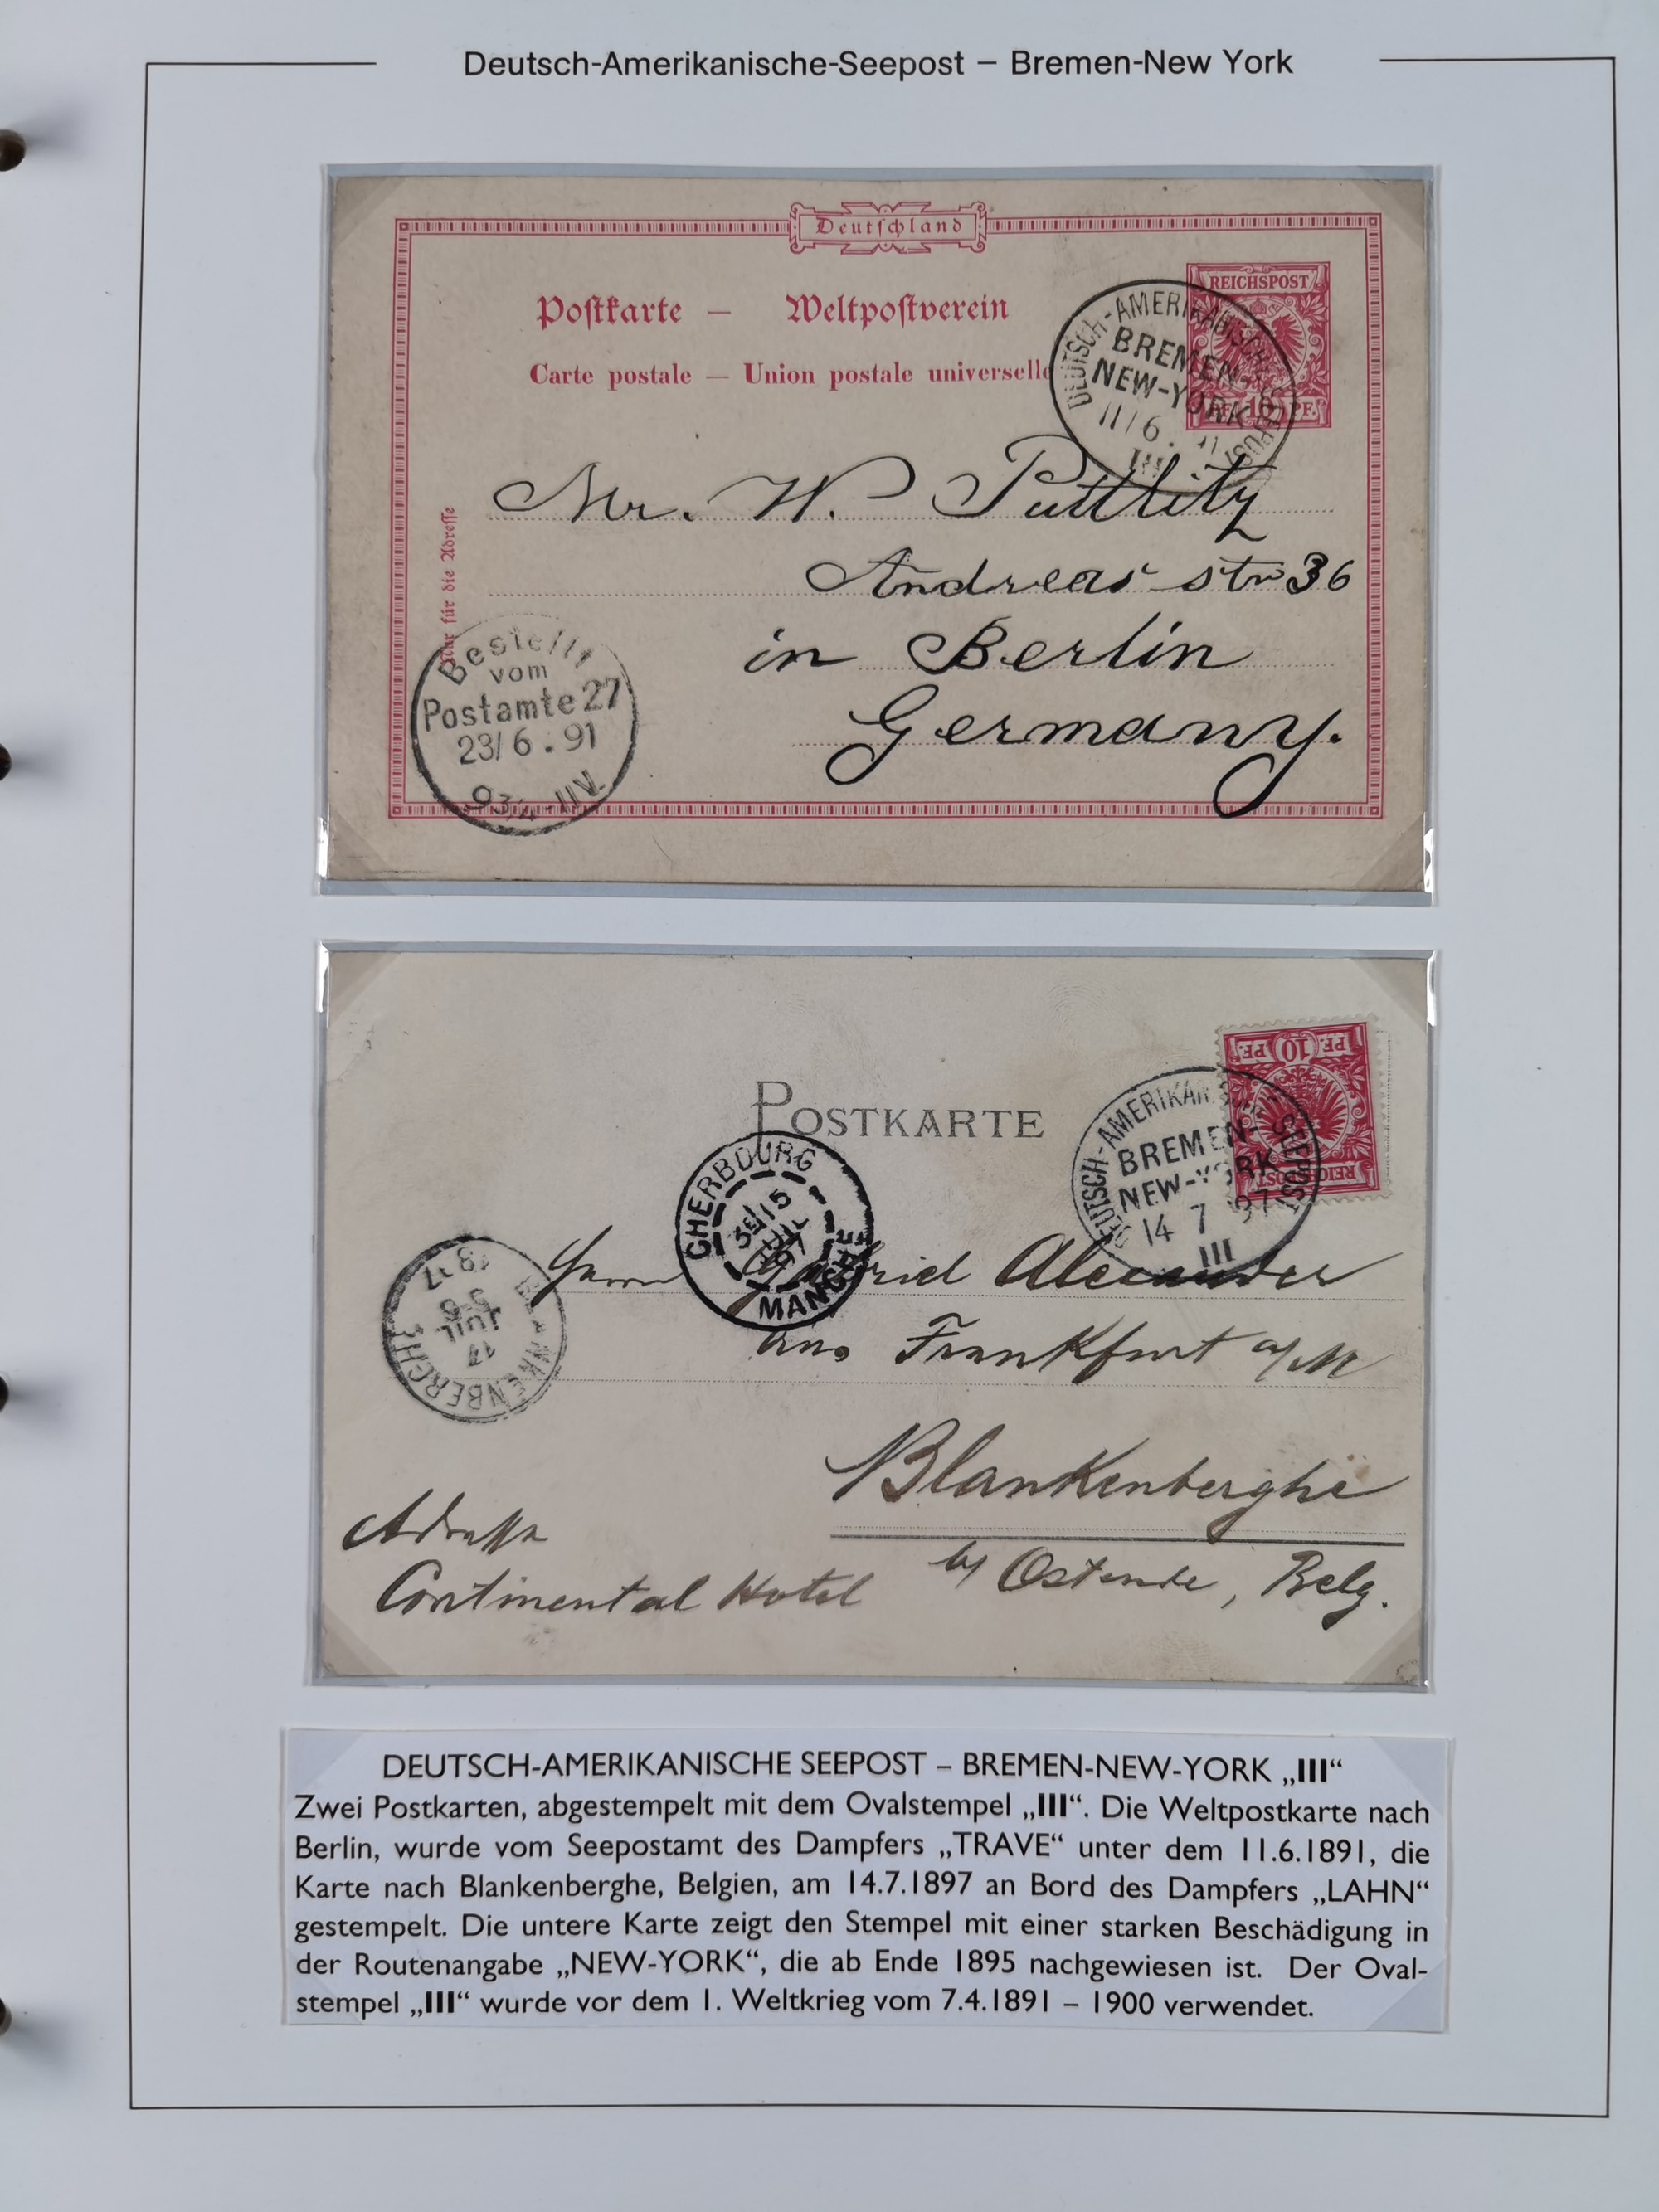 Deutsch-Amerikanische-Seepost – Bremen-New York
Deutschland
Postkarte — Weltpostverein
Carte postale — Union postale universelle
REICHSPOST
10 PF.
DEUTSCH-AMERIKANISCHE SEEPOST
BREMEN-
NEW-YORK
11/6.
III
Mr. W. Puttlitz
Andreas str 36
in Berlin
Germany.
Nur für die Adresse
Bestellt
vom
Postamte 27
23/6.91
9¾-11V.
POSTKARTE
PF. 10 PF.
REICHSPOST
DEUTSCH-AMERIKANISCHE SEEPOST
BREMEN-
NEW-YORK
14 7 97
III
CHERBOURG
3E/15
JUIL
97
MANCHE
BLANKENBERGHE
17
JUIL
5-6
1897
Herrn Alexander
aus Frankfurt a/M
Blankenberghe
by Ostende, Belg.
Adresse
Continental Hotel
DEUTSCH-AMERIKANISCHE SEEPOST – BREMEN-NEW-YORK „III“
Zwei Postkarten, abgestempelt mit dem Ovalstempel „III“. Die Weltpostkarte nach
Berlin, wurde vom Seepostamt des Dampfers „TRAVE“ unter dem 11.6.1891, die
Karte nach Blankenberghe, Belgien, am 14.7.1897 an Bord des Dampfers „LAHN“
gestempelt. Die untere Karte zeigt den Stempel mit einer starken Beschädigung in
der Routenangabe „NEW-YORK“, die ab Ende 1895 nachgewiesen ist. Der Oval-
stempel „III“ wurde vor dem 1. Weltkrieg vom 7.4.1891 – 1900 verwendet.